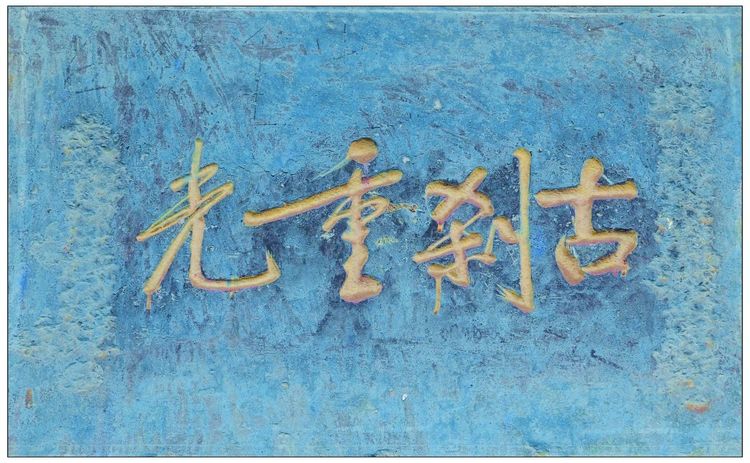 古刹重光